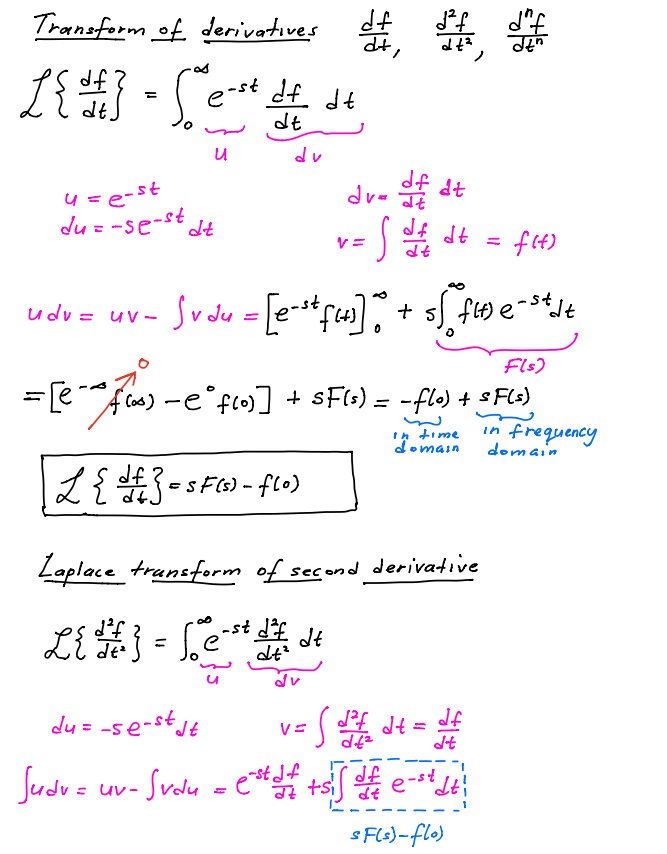 Transform of derivatives df/dt, d²f/dt², dⁿf/dtⁿ
ℒ{df/dt} = ∫₀^∞ e^-st df/dt dt
u dv
u = e^-st dv= df/dt dt
du = -se^-st dt v= ∫ df/dt dt = f(t)
udv = uv- ∫vdu = [e^-st f(t)]₀^∞ + s∫₀^∞ f(t) e^-st dt
F(s)
0
=[e^-∞ f(∞) - e⁰ f(0)] + sF(s) = -f(0) + sF(s)
in time domain in frequency domain
ℒ{df/dt} = sF(s) - f(0)
Laplace transform of second derivative
ℒ{d²f/dt²} = ∫₀^∞ e^-st d²f/dt² dt
u dv
du = -se^-st dt v= ∫ d²f/dt² dt = df/dt
∫udv = uv- ∫vdu = e^-st df/dt +s∫ df/dt e^-st dt
sF(s)-f(0)